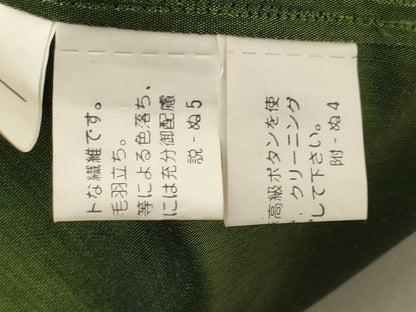 トな繊維です。
毛羽立ち。
等による色落ち、
には充分御配慮
説-ぬ5
高級ボタンを使
、クリーニング
して下さい。
附-ぬ4